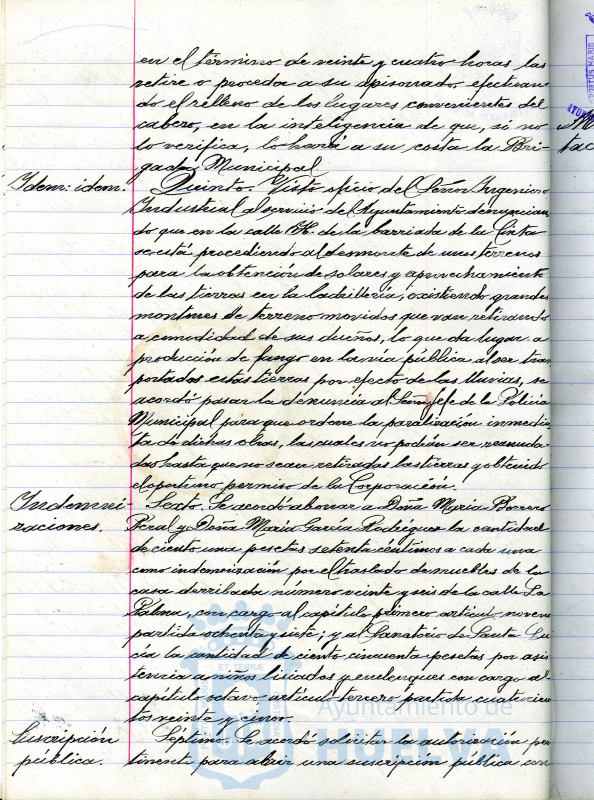 en el término de veinte y cuatro horas las
retire o proceda a su apisonado efectuan
do el relleno de los lugares convenientes del
cabezo, en la inteligencia de que, si no
lo verifica, lo hará a su costa la Bri
gada Municipal
Idem: idem.
Quinto. Visto oficio del Señor Ingeniero
Industrial al servicio del Ayuntamiento denuncian
do que en la calle H. de la barriada de la Cinta
se está procediendo al desmonte de unos terrenos
para la obtención de solares y aprovechamiento
de las tierras en la ladrillería, existiendo grandes
montones de terreno movidos que van retirando
a comodidad de sus dueños, lo que da lugar a
producción de fango en la vía pública al ser trans
portados estas tierras por efecto de las lluvias, se
acordó pasar la denuncia al Señor Jefe de la Policía
Municipal para que ordene la paralización inmedia
ta de dichas obras, las cuales no podrán ser reanuda-
das hasta que no sean retiradas las tierras y obtenido
el oportuno permiso de la Corporación.
Indemni-
zaciones.
Sexto. Se acordó abonar a Doña María Borrero
Peral y Doña María García Rodríguez la cantidad
de ciento una pesetas setenta céntimos a cada una
como indemnización por el traslado de muebles de la
casa derribada número veinte y seis de la calle La
Palma, con cargo al capítulo primero artículo noveno
partida ochenta y siete; y al Sanatorio de Santa Lu
cía la cantidad de ciento cincuenta pesetas por asis
tencia a niños lisiados y enclenques con cargo al
capítulo octavo artículo tercero partida cuatrocien
tos veinte y cinco.
Suscripción
pública.
Septimo. Se acordó solicitar la autorización per
tinente para abrir una suscripción pública con
Ayuntamiento de
HUELVA
ET TERRAE
PORTUS MARIS
tac